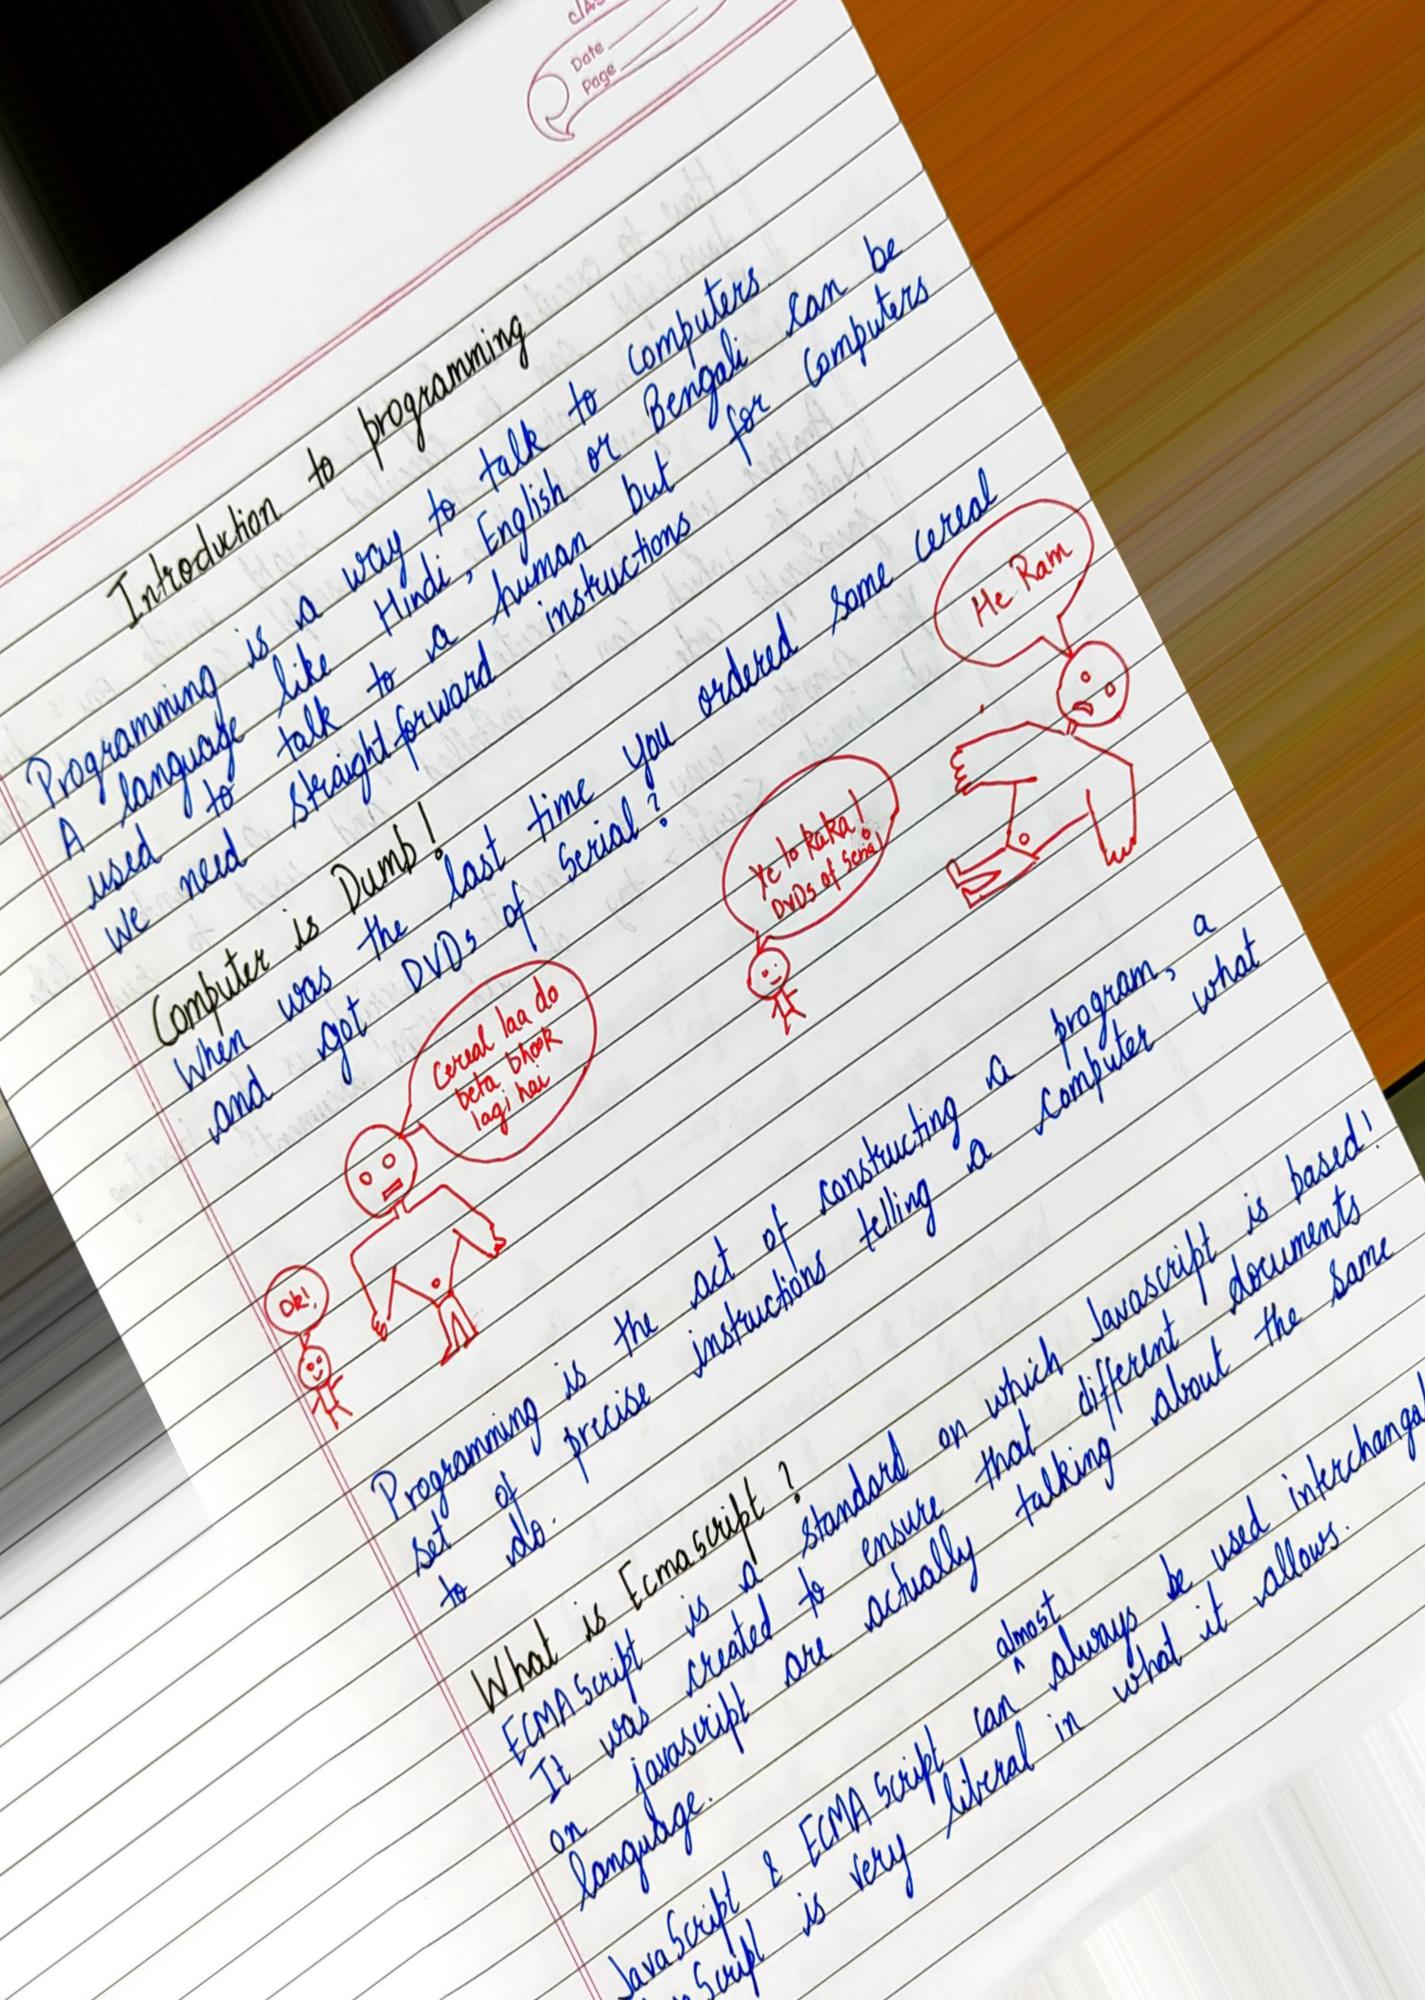 Date
Page
Introduction to programming
Programming is a way to talk to computers.
A language like Hindi, English or Bengali can be
used to talk to a human but for computers
we need straightforward instructions
Computer is Dumb!
When was the last time you ordered some cereal
and got DVDs of serial?
He Ram
Ye lo kaka!
DVDs of serial
Cereal laa do
beta bhook
lagi hai
Ok!
Programming is the act of constructing a program, a
set of precise instructions telling a computer what
to do.
What is Ecmascript?
ECMAScript is a standard on which Javascript is based!
It was created to ensure that different documents
on javascript are actually talking about the same
language.
JavaScript & ECMAScript can almost always be used
Script is very liberal in what it allows.